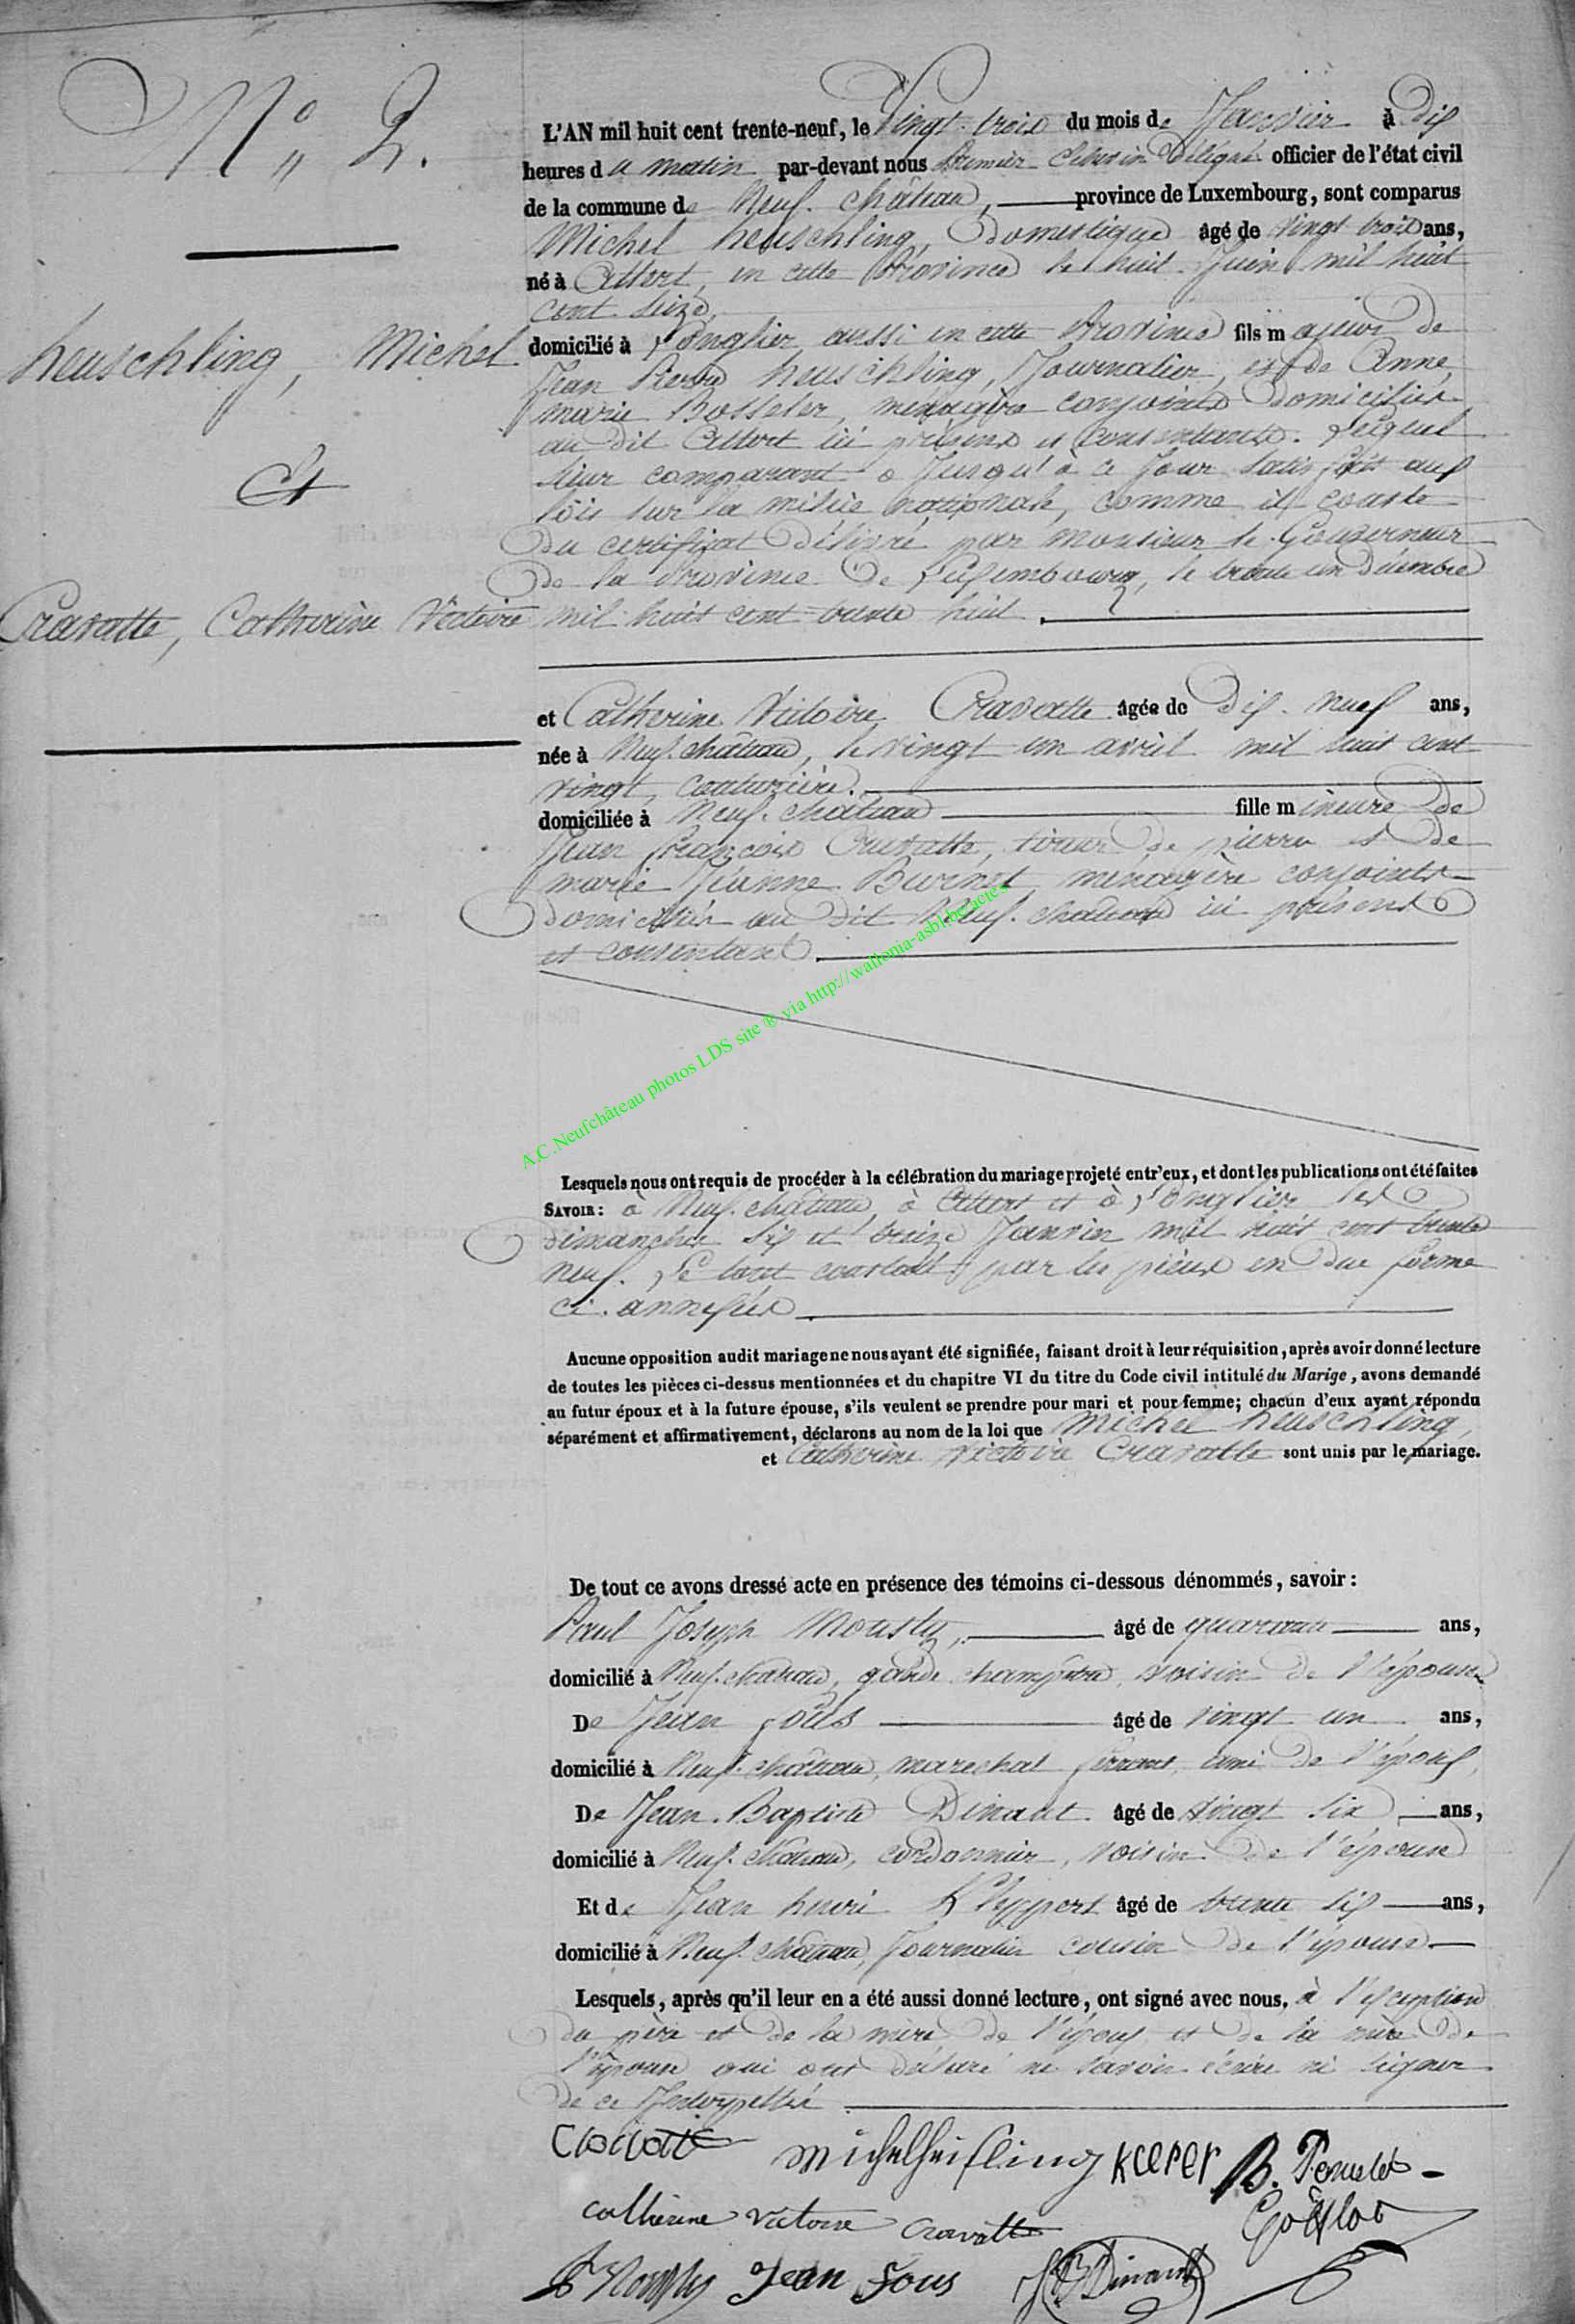 N° 2.
L'AN mil huit cent trente-neuf, le Vingt-trois du mois de Janvier à Dix
heures du matin par-devant nous Premier Echevin Délégué officier de l'état civil
de la commune de Neuf-château, province de Luxembourg, sont comparus
Michel heuschling, Domestique âgé de vingt trois ans,
né à Attert, en cette Province le huit Juin mil huit
cent Seize,
domicilié à Longlier, aussi en cette Province fils majeur de
heuschling, Michel
Jean Pierre heuschling, Journalier, et de Anne,
marie Bosseler, menagère conjoints Domiciliés
au dit Attert ici présens et consentants. Lequel
&
sieur comparant a Jusqu'à ce Jour satisfait aux
lois sur la milice nationale, comme il conste
Du certificat Délivré par monsieur le Gouverneur
De la Province De Luxembourg, le trente un Décembre
Cravatte, Catherine Victoire
mil huit cent trente huit.
et Catherine Victoire Cravatte âgée de Dix-neuf ans,
née à Neuf-château, le vingt un avril mil huit cent
vingt, couturière.
domiciliée à Neuf-château fille mineure de
Jean françois Cravatte, tireur de pierre et De
marie Jeanne Burnet ménagère conjoints
Domiciliés au Dit Neuf-château ici présens
et consentans.
A.C.Neufchâteau photos LDS site ® via http://wallonia-asbl.be/actes
Lesquels nous ont requis de procéder à la célébration du mariage projeté entr'eux, et dont les publications ont été faites
SAVOIR: à Neuf-château, à Attert et à Longlier les
Dimanches Six et treize Janvier mil huit cent trente
neuf. Le tout constaté par les pièces en due forme
ci-annexées.
Aucune opposition audit mariage ne nous ayant été signifiée, faisant droit à leur réquisition, après avoir donné lecture
de toutes les pièces ci-dessus mentionnées et du chapitre VI du titre du Code civil intitulé du Marige, avons demandé
au futur époux et à la future épouse, s'ils veulent se prendre pour mari et pour femme; chacun d'eux ayant répondu
séparément et affirmativement, déclarons au nom de la loi que Michel heuschling,
et Catherine Victoire Cravatte sont unis par le mariage.
De tout ce avons dressé acte en présence des témoins ci-dessous dénommés, savoir:
Paul Joseph Mousty, âgé de quarante ans,
domicilié à Neuf-château, garde champêtre, voisin De l'épouse
De Jean fous âgé de vingt un ans,
domicilié à Neuf-château, marechal ferrant, ami De l'époux,
De Jean-Baptiste Dinant âgé de vingt six ans,
domicilié à Neuf-château, cordonnier, voisin De l'épouse
Et de Jean henri Klippert âgé de trente six ans,
domicilié à Neuf-château, Journalier cousin De l'épouse
Lesquels, après qu'il leur en a été aussi donné lecture, ont signé avec nous, à l'exception
Du père et De la mère De l'époux et De la mère De
l'épouse qui ont Déclaré ne savoir écrire ni signer
De ce Interpellés.
Cravatte
Michel heisling
B.
catherine victoire cravatte
Jean fous
JB Dinant